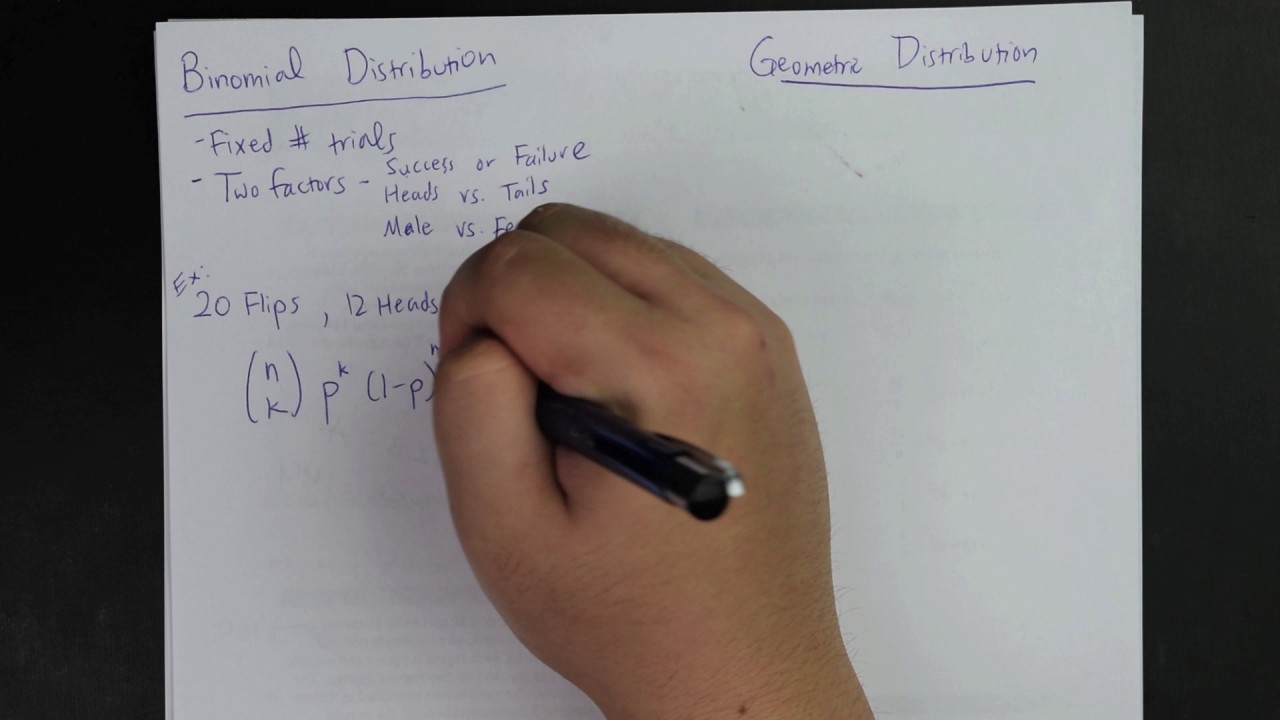 Binomial Distribution
- Fixed # trials
- Two factors - Success or Failure
Heads vs. Tails
Male vs.
Ex:
20 Flips , 12 Heads
(n k) p^k (1-p)^n
Geometric Distribution